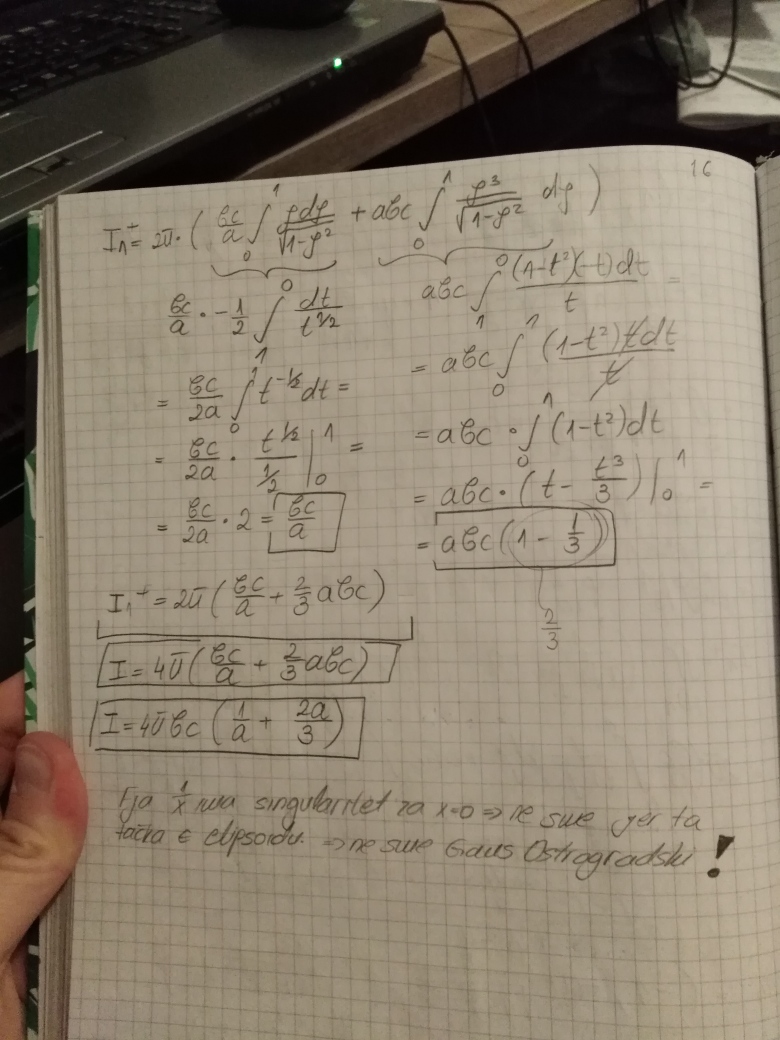 16
I₁⁺ = 2π · ( bc/a ∫₀¹ ρdρ/√(1-ρ²) + abc ∫₀¹ ρ³/√(1-ρ²) dρ )
bc/a · -1/2 ∫₁⁰ dt/t^(1/2)
= bc/2a ∫₀¹ t^(-1/2) dt =
= bc/2a · t^(1/2)/(1/2) |₀¹ =
= bc/2a · 2 = bc/a
abc ∫₁⁰ (1-t²)(-t)dt/t =
= abc ∫₀¹ (1-t²)tdt/t
= abc · ∫₀¹ (1-t²)dt
= abc · (t - t³/3) |₀¹ =
= abc (1 - 1/3)
2/3
I₁⁺ = 2π ( bc/a + 2/3 abc )
I = 4π ( bc/a + 2/3 abc )
I = 4πbc ( 1/a + 2a/3 )
Fja 1/x ima singularitet za x=0 => ne sme jer ta
tačka ∈ elipsoidu. => ne sme Gaus Ostrogradski !